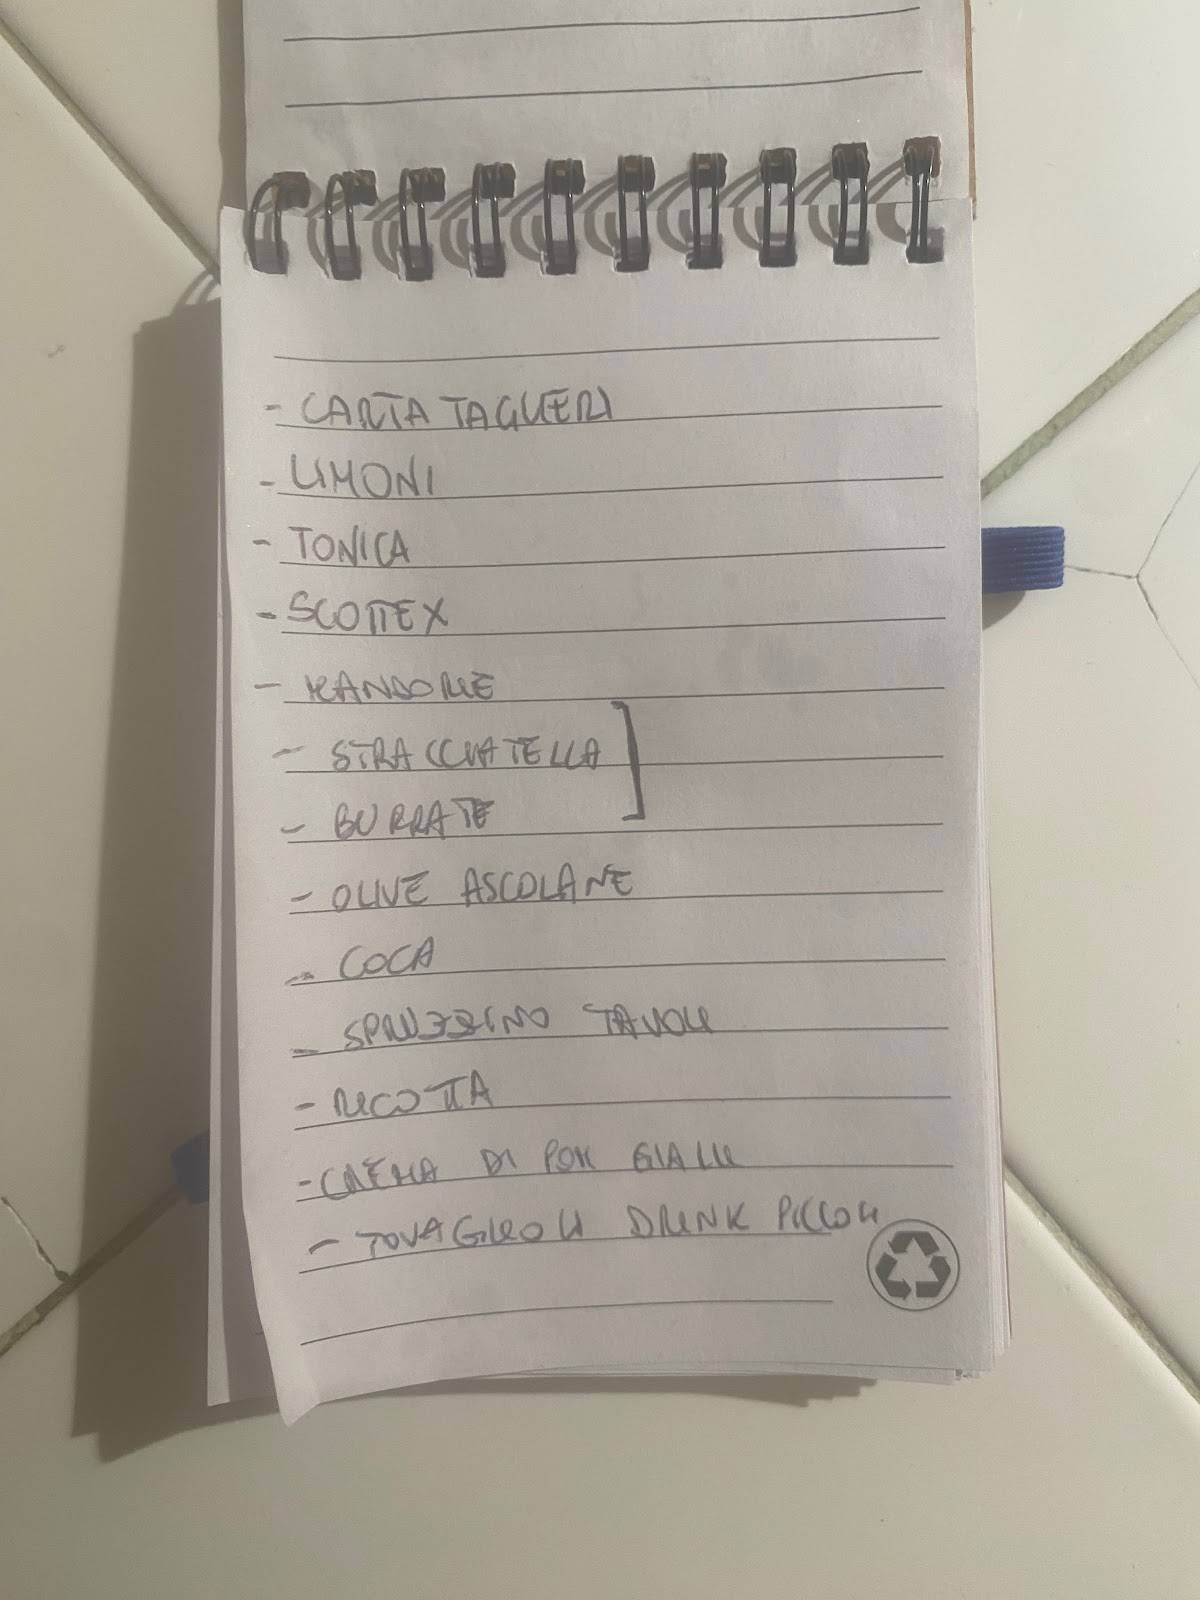 - CARTA TAGLIERI
- LIMONI
- TONICA
- SCOTTEX
- MANDORLE
- STRACCIATELLA
- BURRATE
- OLIVE ASCOLANE
- COCA
- SPRUZZINO TAVOLI
- RICOTTA
- CREMA DI POM GIALLI
- TOVAGLIOLI DRINK PICCOLI